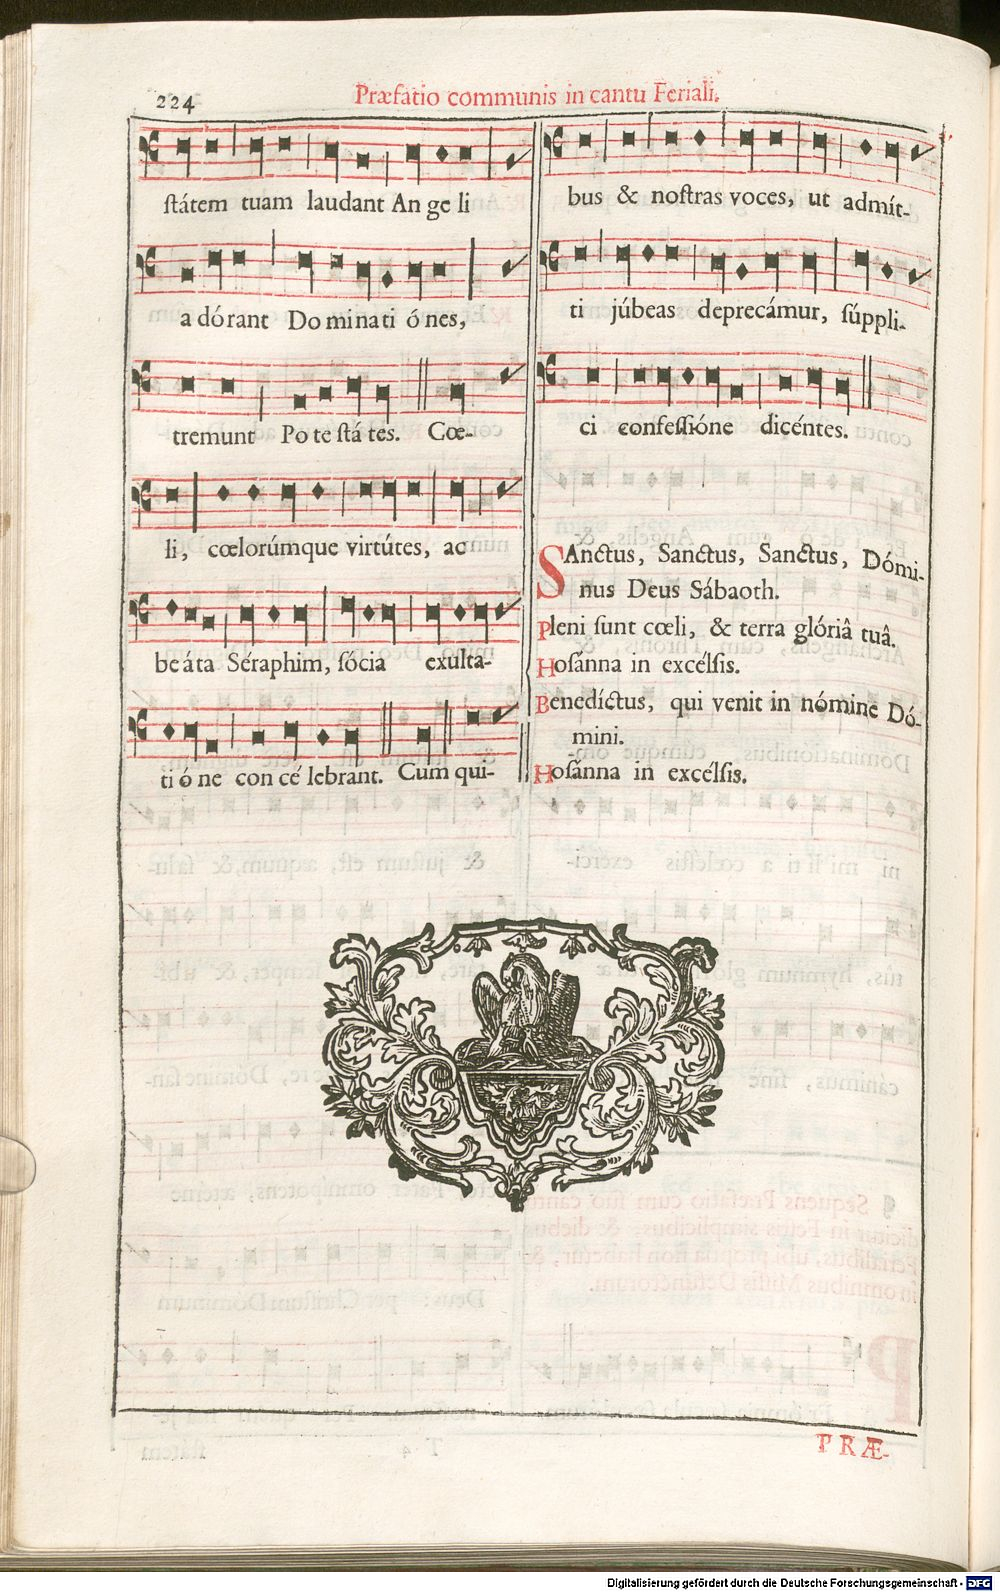 224
Præfatio communis in cantu Feriali.
ſtátem tuam laudant An ge li
a dó rant Do mi na ti ó nes,
tremunt Po te ſtá tes. Cœ-
li, cœlorúmque virtútes, ac
be á ta Séraphim, ſócia exulta-
ti ó ne con cé lebrant. Cum qui-
bus & noſtras voces, ut admít-
ti júbeas deprecámur, ſúppli-
ci confeſſióne dicéntes.
SAnctus, Sanctus, Sanctus, Dómi-
nus Deus Sábaoth.
Pleni ſunt cœli, & terra glóriâ tuâ.
Hoſánna in excélſis.
Benedíctus, qui venit in nómine Dó-
mini.
Hoſánna in excélſis.
PRÆ-
Digitalisierung gefördert durch die Deutsche Forschungsgemeinschaft - DFG